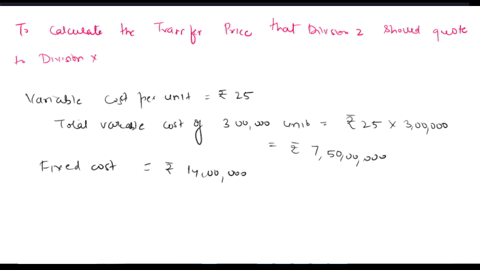 To calculate the Transfer Price that Division Z should quote
to Division X
Variable cost per unit = ₹ 25
Total variable cost of 300,000 unit = ₹ 25 × 3,00,000
= ₹ 7,50,00,000
Fixed cost = ₹ 14,00,000